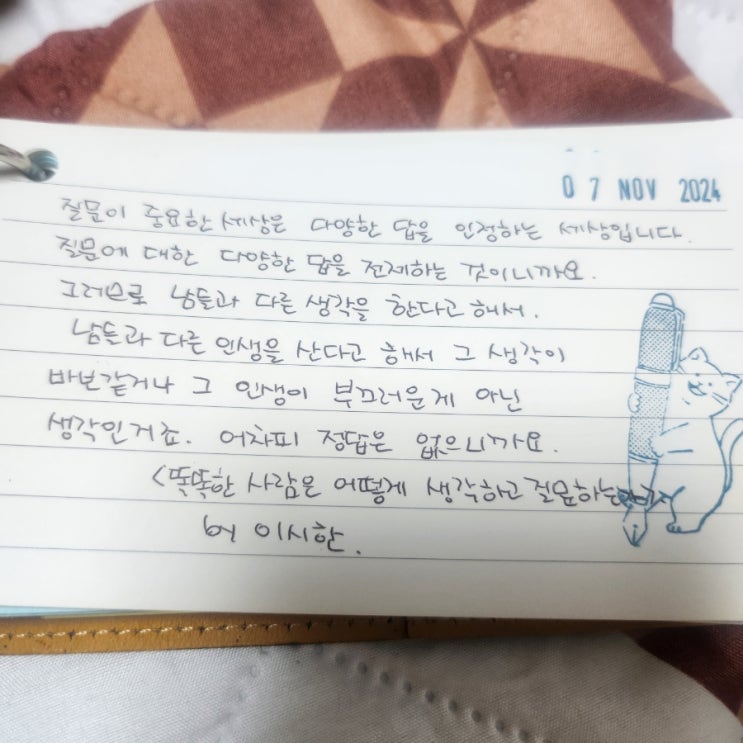 07 NOV 2024
질문이 중요한 세상은 다양한 답을 인정하는 세상입니다.
질문에 대한 다양한 답을 전제하는 것이니까요.
그러므로 남들과 다른 생각을 한다고 해서.
남들과 다른 인생을 산다고 해서 그 생각이
바보같거나 그 인생이 부끄러운게 아닌
생각인거죠. 어차피 정답은 없으니까요.
<똑똑한 사람은 어떻게 생각하고 질문하는
by 이시한.